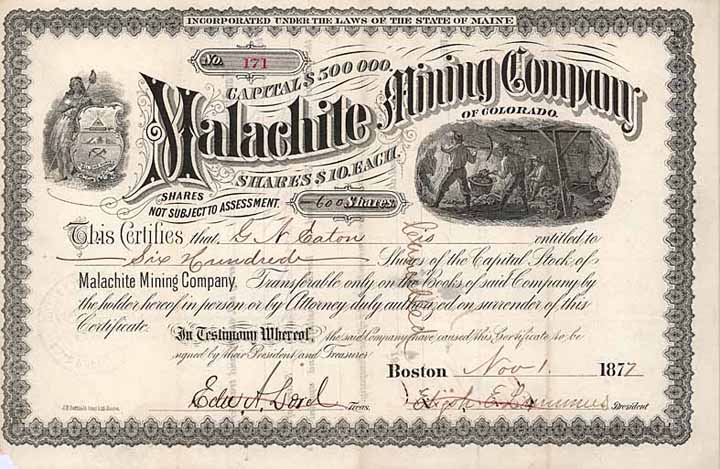 INCORPORATED UNDER THE LAWS OF THE STATE OF MAINE
No. 171
CAPITAL $500 000.
Malachite Mining Company
OF COLORADO.
SHARES $10. EACH.
SHARES
NOT SUBJECT TO ASSESSMENT.
600 Shares
This Certifies that G N Eaton is entitled to
Six Hundred Shares of the Capital Stock of
Malachite Mining Company, Transferable only on the Books of said Company by
the holder hereof in person or by Attorney duly authorized on surrender of this
Certificate.
In Testimony Whereof, the said Company have caused this Certificate to be
signed by their President and Treasurer
Boston Nov 1. 1877
Edw A. Treas. E. President